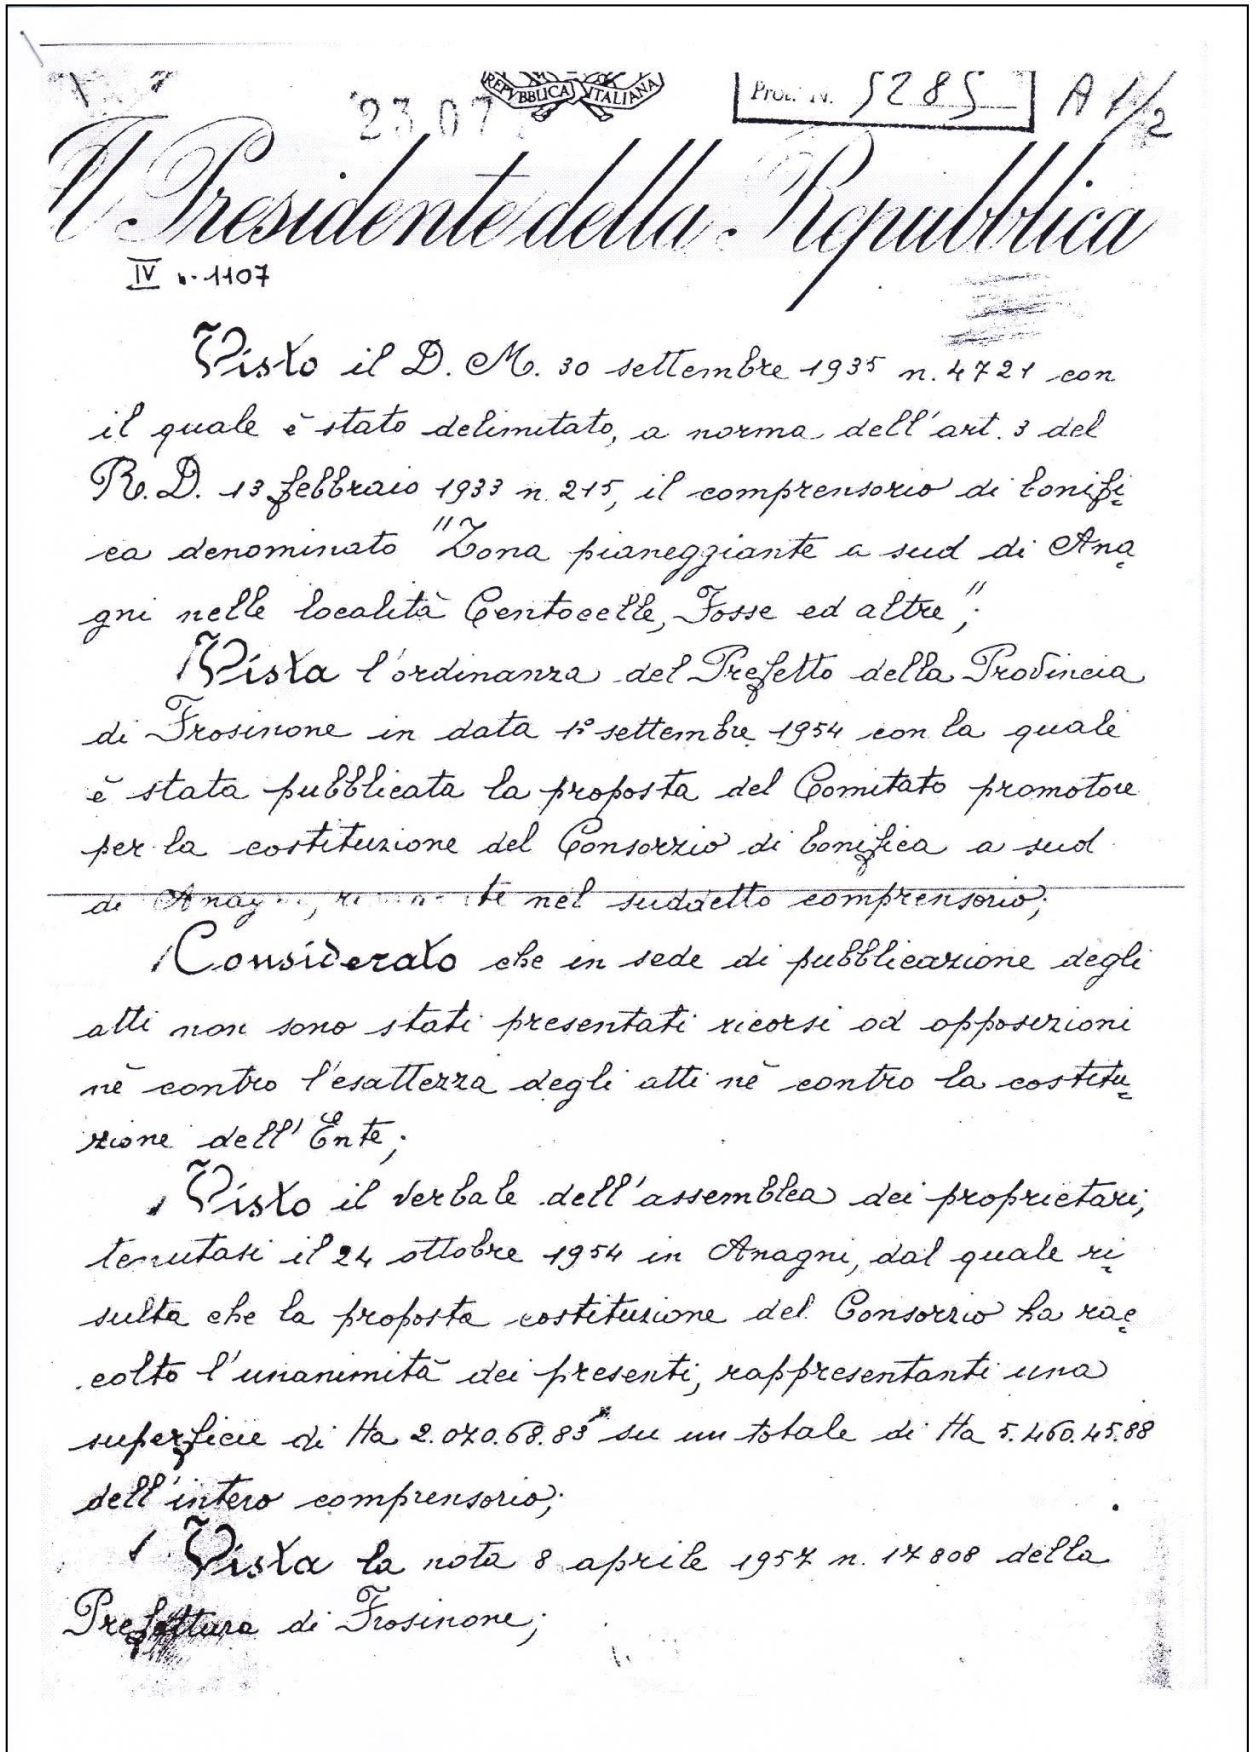 REPVBBLICA ITALIANA
23 07
Prot. N. 5285
A 1/2
Il Presidente della Repubblica
IV n. 1107
Visto il D. M. 30 settembre 1935 n. 4721 con
il quale è stato delimitato, a norma dell'art. 3 del
R. D. 13 febbraio 1933 n. 215, il comprensorio di bonifi=
ca denominato "Zona pianeggiante a sud di Ana=
gni nelle località Centocelle, Fosse ed altre";
Vista l'ordinanza del Prefetto della Provincia
di Frosinone in data 1° settembre 1954 con la quale
è stata pubblicata la proposta del Comitato promotore
per la costituzione del Consorzio di bonifica a sud
di Anagni, nel suddetto comprensorio;
Considerato che in sede di pubblicazione degli
atti non sono stati presentati ricorsi od opposizioni
nè contro l'esattezza degli atti nè contro la costitu=
zione dell'Ente;
Visto il verbale dell'assemblea dei proprietari,
tenutasi il 24 ottobre 1954 in Anagni, dal quale ri=
sulta che la proposta costituzione del Consorzio ha rac=
colto l'unanimità dei presenti, rappresentanti una
superficie di Ha 2.070.68.83 su un totale di Ha 5.460.45.88
dell'intero comprensorio;
Vista la nota 8 aprile 1957 n. 17808 della
Prefettura di Frosinone;